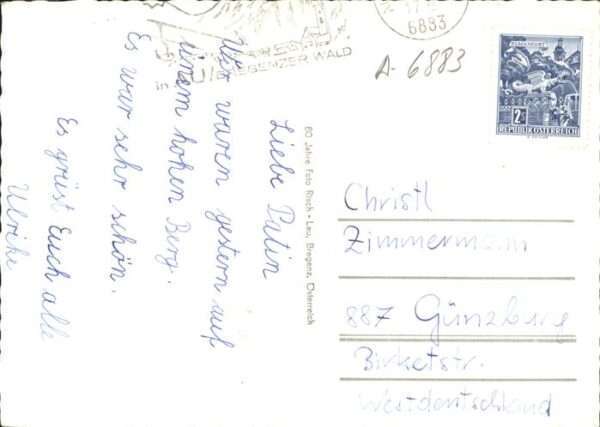 6883
BREGENZER WALD
A-6883
KLAGENFURT
2S
REPUBLIK ÖSTERREICH
Liebe Patin
Wir waren gestern auf
einem hohen Berg.
Es war sehr schön.
Es grüst Euch alle
Ulrike
60 Jahre Foto Risch-Lau, Bregenz, Österreich
Christl
Zimmermann
887 Günzburg
Birketstr.
Westdeutschland